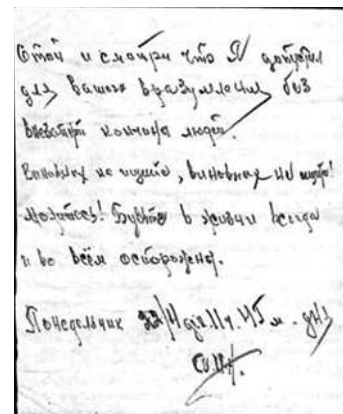 Стой и смотри что Я допустил
для вашего вразумления без
внезапной кончины людей.
Виновных не ищите, виновных не ищите!
Молитесь! Будьте в жизни всегда
и во всём осторожны.
Понедельник 11ч. 45 м. дня